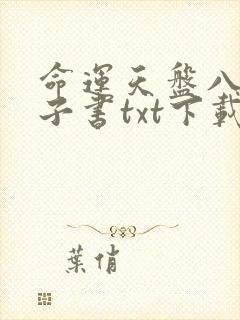 命運天盤八
子書txt下載
葉俏